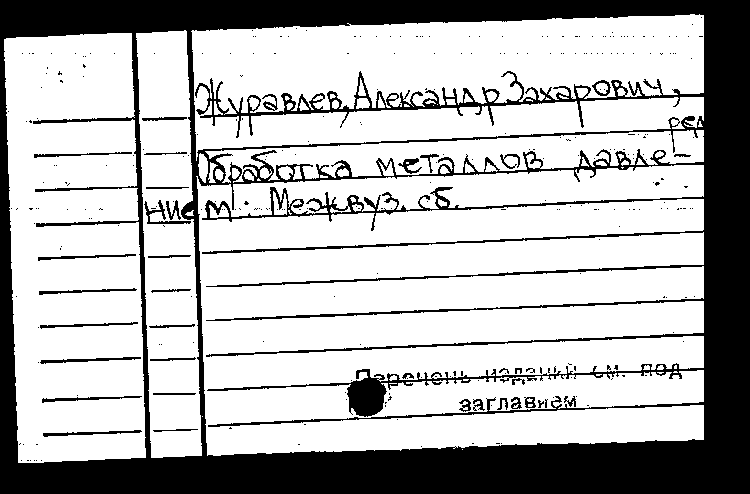 Журавлев, Александр Захарович,
ред.
Обработка металлов давле-
нием : Межвуз. сб.
Перечень изданий см. под
заглавием